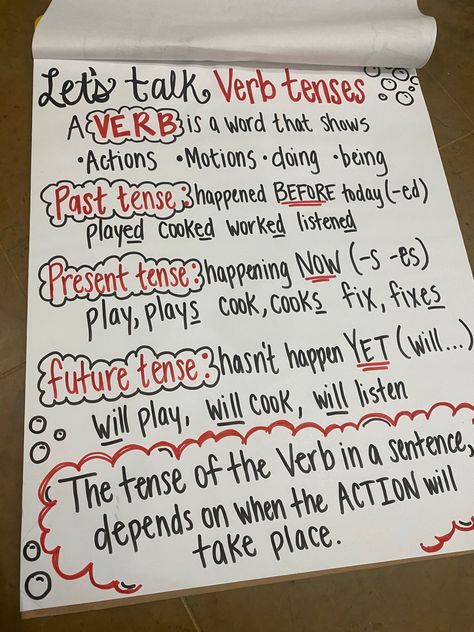 Let's talk Verb tenses
A VERB is a word that shows
•Actions •Motions •doing •being
Past tense: happened BEFORE today (-ed)
played cooked worked listened
Present tense: happening NOW (-s -es)
play, plays cook, cooks fix, fixes
future tense: hasn't happen YET (will...)
will play, will cook, will listen
The tense of the Verb in a sentence,
depends on when the ACTION will
take place.